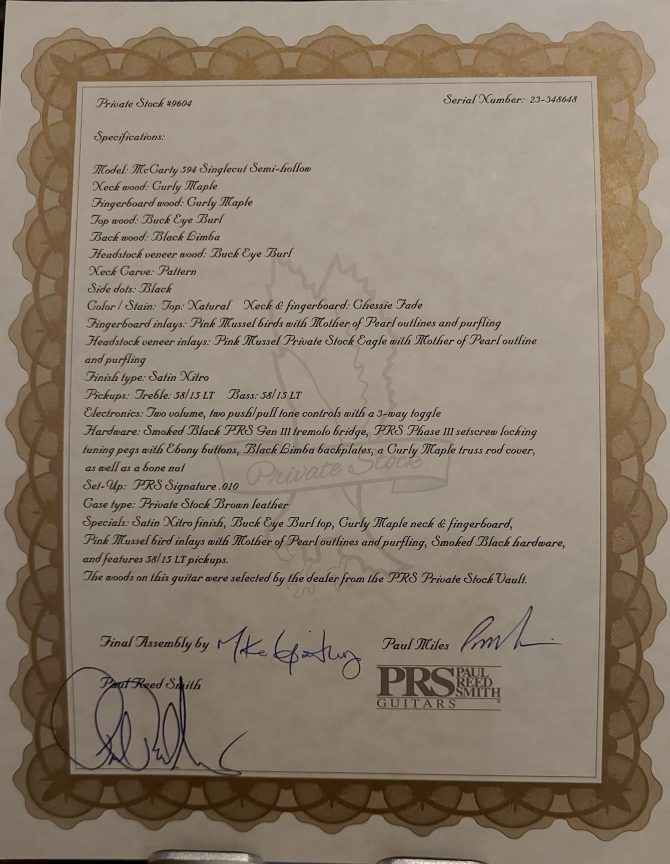 Private Stock #9604
Serial Number: 23-348648
Specifications:
Model: McCarty 594 Singlecut Semi-hollow
Neck wood: Curly Maple
Fingerboard wood: Curly Maple
Top wood: Buck Eye Burl
Back wood: Black Limba
Headstock veneer wood: Buck Eye Burl
Neck Carve: Pattern
Side dots: Black
Color / Stain: Top: Natural Neck & fingerboard: Chessie Fade
Fingerboard inlays: Pink Mussel birds with Mother of Pearl outlines and purfling
Headstock veneer inlays: Pink Mussel Private Stock Eagle with Mother of Pearl outline
and purfling
Finish type: Satin Nitro
Pickups: Treble: 58/15 LT Bass: 58/15 LT
Electronics: Two volume, two push/pull tone controls with a 3-way toggle
Hardware: Smoked Black PRS Gen III tremolo bridge, PRS Phase III setscrew locking
tuning pegs with Ebony buttons, Black Limba backplates, a Curly Maple truss rod cover,
as well as a bone nut
Private Stock
Set-Up: PRS Signature .010
Case type: Private Stock Brown leather
Specials: Satin Nitro finish, Buck Eye Burl top, Curly Maple neck & fingerboard,
Pink Mussel bird inlays with Mother of Pearl outlines and purfling, Smoked Black hardware,
and features 58/15 LT pickups.
The woods on this guitar were selected by the dealer from the PRS Private Stock Vault.
Final Assembly by Mike
Paul Miles
Paul Reed Smith
PRS PAUL REED SMITH
GUITARS